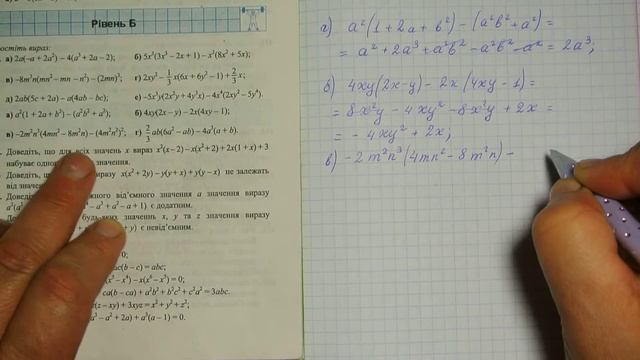 Рівень Б
ростіть вираз:
а) 2a(-a + 2a²) - 4(a³ + 2a - 2); б) 5x³(3x³ - 2x + 1) - x²(8x² + 5x);
в) -8m²n(mn² - mn - n³) - (2mn)³; г) 2xy² - 1/3 x(6x + 6y² - 1) + 2/3 x;
д) 2ab(5c + 2a) - a(4ab - bc); е) -5x³y(2x²y + 4y³x) - 4x⁴(2xy² - 5y⁴).
а) a²(1 + 2a + b²) - (a²b² + a²); б) 4xy(2x - y) - 2x(4xy - 1);
в) -2m²n³(4mn² - 8m²n) - (4m²n²)²; г) 2/3 ab(6a² - ab) - 4a³(a + b).
Доведіть, що для всіх значень x вираз x²(x - 2) - x(x² + 2) + 2x(1 + x) + 3
набуває одного значення.
Доведіть, виразу x(x² + 2y) - y(y + x) + y(y - x) не залежать
від значення
Доведіть, відмінного від значення a значення виразу
- a³ + a² - a + 1) є додатним.
будь-яких значень x, y та z значення виразу
+ y) є невід'ємним.
= 0;
ac(b - c) = abc;
- x⁴) - x(x⁶ - x³) = 0;
ca(b - ca) + a²b² + b²c² + c²a² = 3abc.
(z - xy) + 3xyz = x² + y² + z²;
- a² + 2a) + a³(a - 1) = 0.
г) a²(1 + 2a + b²) - (a²b² + a²) =
= a² + 2a³ + a²b² - a²b² - a² = 2a³;
б) 4xy(2x - y) - 2x(4xy - 1) =
= 8x²y - 4xy² - 8x²y + 2x =
= - 4xy² + 2x;
в) -2m²n³(4mn² - 8m²n) -